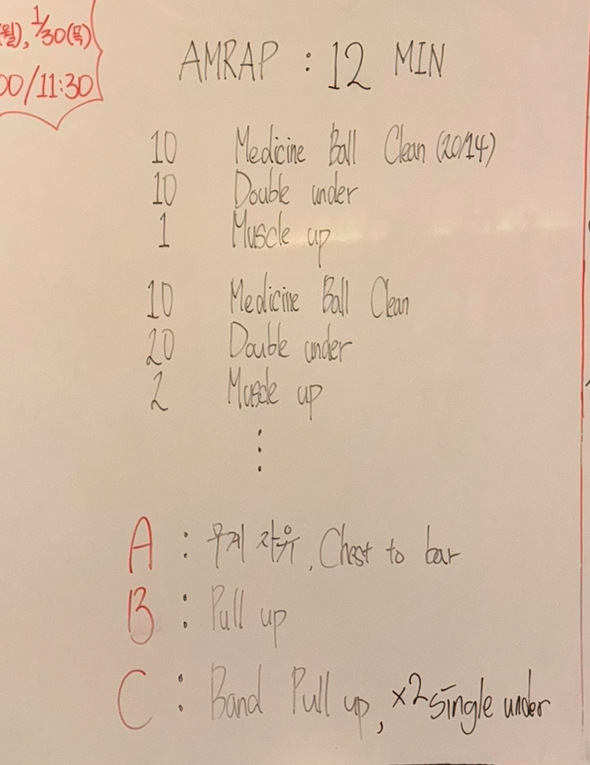 (월), 1/30(목)
00/11:30
AMRAP : 12 MIN
10 Medicine Ball Clean (20/14)
10 Double under
1 Muscle up
10 Medicine Ball Clean
20 Double under
2 Muscle up
⋮
A : 무게 자유, Chest to bar
B : Pull up
C : Band Pull up, x2 single under